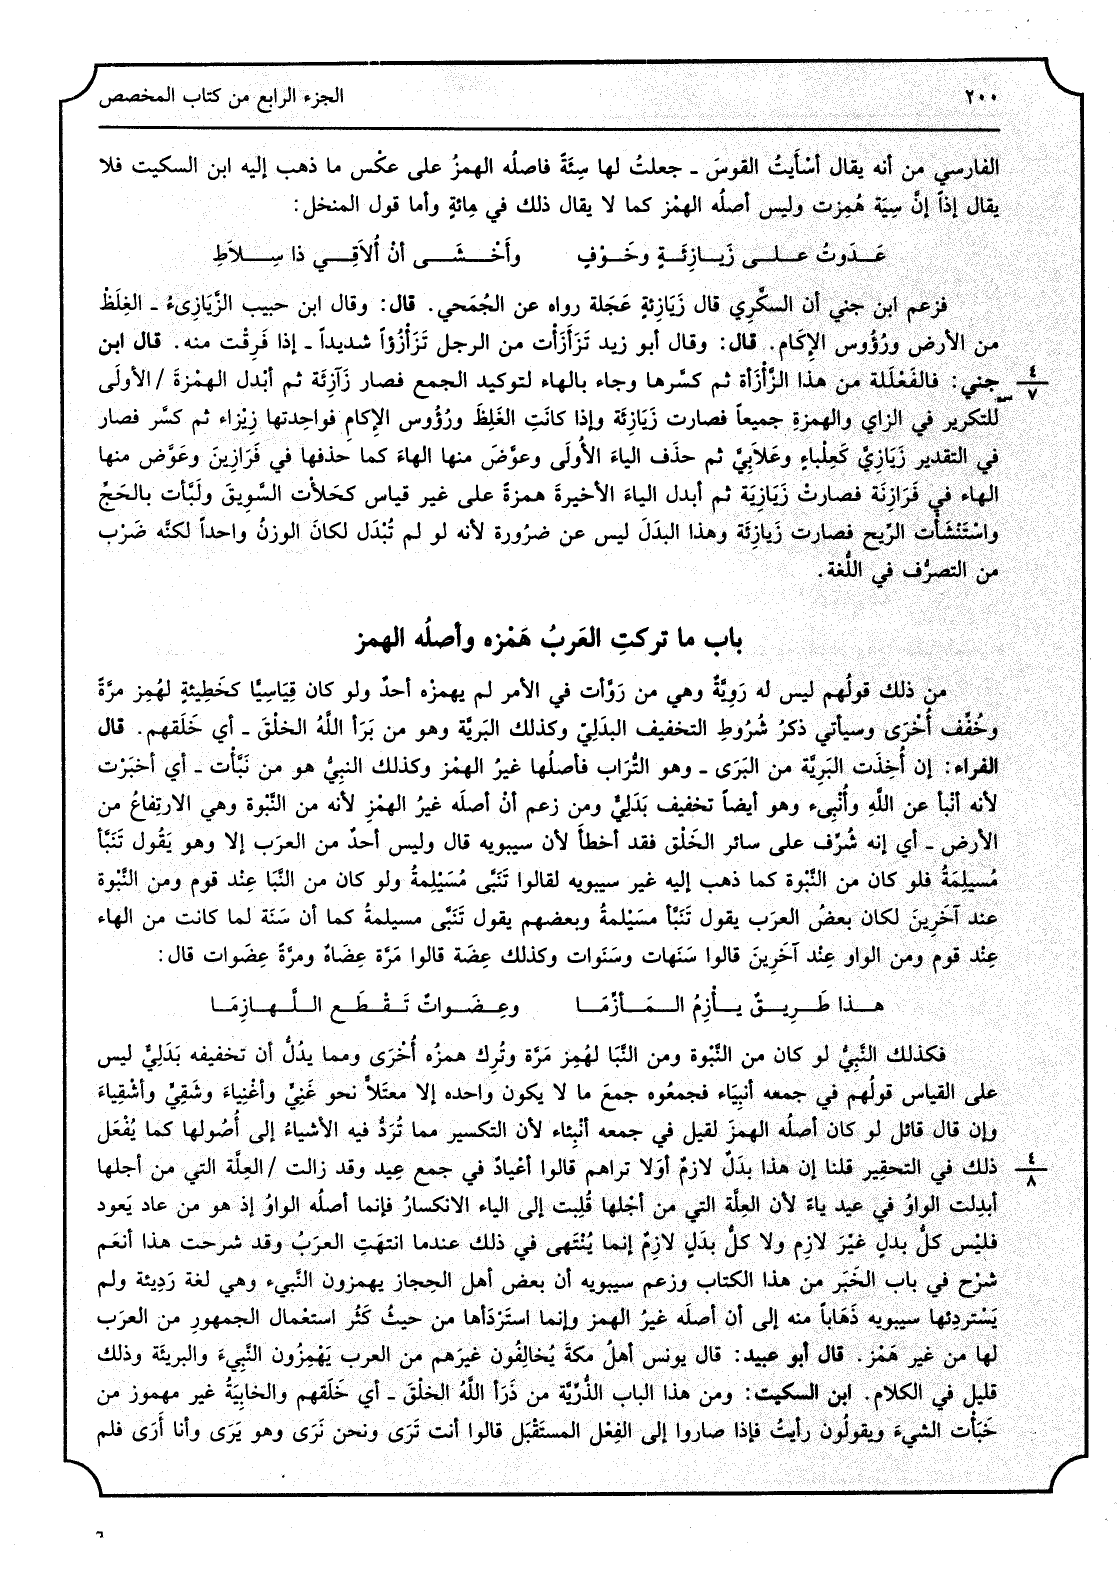 ٢٠٠ الجزء الرابع من كتاب المخصص
الفارسي من أنه يقال أسْأَيتُ القوسَ ـ جعلتُ لها سِئَةً فاصلُه الهمزُ على عكْس ما ذهب إليه ابن السكيت فلا
يقال إذاً إنَّ سِيَة هُمِزت وليس أصلُه الهمْز كما لا يقال ذلك في مِائةٍ وأما قول المنخل:
عَـدَوتُ عـلـى زَيَـازِئَـةٍ وخَـوْفٍ وأَخْـشَـى أنْ أُلاَقِـي ذا سِـلاَطِ
فزعم ابن جني أن السكَّرِي قال زَيَازِئةٍ عَجَلة رواه عن الجُمَحي. قال: وقال ابن حبيب الزَّيَازِىءُ ـ الغِلَظْ
من الأرض ورُؤُوس الإِكَام. قال: وقال أبو زيد تَزَأزَأْت من الرجل تَزَأْزُؤاً شديداً ـ إذا فَرِقْت منه. قال ابن
جني: فالفَعْلَلة من هذا الزَّأْزَأة ثم كسَّرها وجاء بالهاء لتوكيد الجمع فصار زَآزِئَة ثم أبْدل الهمْزةَ / الأولَى
٤
٧
للتكرير في الزاي والهمزةِ جميعاً فصارت زَيَازِئَة وإذا كانَتِ الغَلِظَ ورُؤُوس الإِكامِ فواحِدتها زِيْزاء ثم كسَّر فصار
في التقدير زَيَازِيَّ كَعِلْباءٍ وعَلاَبِيَّ ثم حذَف الياءَ الأُولَى وعوَّضَ منها الهاءَ كما حذفها في فَرَازِينَ وعَوَّض منها
الهاء في فَرَازِنَة فصارتْ زَيَازِيَة ثم أبدل الياءَ الأخيرةَ همزةً على غير قياس كحَلأْت السَّوِيقَ ولَبَّأت بالحَجِّ
واسْتَنْشَأْت الرِّيح فصارت زَيازِئَة وهذا البدَلَ ليس عن ضرورة لأنه لو لم تُبْدَل لكانَ الوزنُ واحداً لكنَّه ضَرْب
من التصرُّف في اللُّغة.
باب ما تركتِ العَربُ هَمْزه وأصلُه الهمز
من ذلك قولُهم ليس له رَوِيَّةٌ وهي من رَوَّأت في الأمر لم يهمزْه أحدٌ ولو كان قِيَاسِيًّا كخَطِيئةٍ لهُمِز مرَّةً
وخُفِّف أُخْرَى وسيأتي ذكرُ شُرُوطِ التخفيف البدَلِيّ وكذلك البَرِيَّة وهو من بَرَأ اللَّهُ الخلْقَ ـ أي خَلَقهم. قال
الفراء: إن أُخِذَت البَرِيَّة من البَرَى ـ وهو التُّراب فأصلُها غيرُ الهمْز وكذلك النبيُّ هو من نَبَّأْت ـ أي أخبَرْت
لأنه أنْبأ عن اللَّهِ وأُنْبِىء وهو أيضاً تخفيف بَدَلِيٌّ ومن زعم أنْ أصلَه غيرُ الهمْزِ لأنه من النَّبْوة وهي الارتِفاعُ من
الأرض ـ أي إنه شُرِّف على سائر الخَلْق فقد أخطأَ لأن سيبويه قال وليس أحدٌ من العرَب إلا وهو يَقُول تَنَبَّأ
مُسيلِمَةُ فلو كان من النَّبْوة كما ذهب إليه غير سيبويه لقالوا تَنَبَّى مُسَيْلِمةُ ولو كان من النَّبَا عِنْد قوم ومن النَّبْوة
عند آخَرِينَ لكان بعضُ العرَب يقول تَنَبَّأ مسَيْلمةُ وبعضهم يقول تَنَبَّى مسيلمةُ كما أن سَنَة لما كانت من الهاء
عِنْد قوم ومن الواو عِنْد آخَرِينَ قالوا سَنَهات وسَنَوات وكذلك عِضَة قالوا مَرَّة عِضَاهٌ ومرَّةً عِضَوات قال:
هـذا طَـرِيـقٌ يـأْزِمُ الـمَـآزِمَـا وعِـضَـواتٌ تَـقْـطَـع الـلَّـهـازِمَـا
فكذلك النَّبِيُّ لو كان من النَّبْوة ومن النَّبَا لهُمِز مَرَّة وتُرِك همزُه أُخْرَى ومما يدُلُّ أن تخفيفه بَدَلِيٌّ ليس
على القياس قولُهم في جمعه أنبِيَاء فجمعُوه جمعَ ما لا يكون واحده إلا معتَلاًّ نحو غَنِيٍّ وأغْنِياءَ وشَقِيٍّ وأشْقِياءَ
وإن قال قائل لو كان أصلُه الهمزَ لقيل في جمعه أنْبِئاء لأن التكسير مما تُرَدُّ فيه الأشياءُ إلى أُصُولها كما يُفْعَل
ذلك في التحقير قلنا إن هذا بدَلٌ لازمٌ أوَلا تراهم قالوا أعْيادٌ في جمع عِيد وقد زالت / العِلَّة التي من أجلها
٤
٨
أبدِلت الواوُ في عيد ياءً لأن العِلَّة التي من أجْلها قُلِبت إلى الياء الانكسارُ فإنما أصلُه الواوُ إذ هو من عاد يَعود
فليْس كلُّ بدلٍ غيْرَ لازِم ولا كلُّ بدَلٍ لازِمٌ إنما يُنْتَهى في ذلك عندما انتهَتِ العرَبُ وقد شرحت هذا أنعَم
شرْح في باب الخَبَر من هذا الكتاب وزعم سيبويه أن بعض أهل الحِجاز يهمزون النَّبيء وهي لغة رَدِيئة ولم
يَسْتردِئها سيبويه ذَهَاباً منه إلى أن أصلَه غيرُ الهمز وإنما استَرْدَأها من حيثُ كَثُر استعْمال الجمهورِ من العرَب
لها من غير هَمْز. قال أبو عبيد: قال يونس أهلُ مكةَ يُخالِفُون غيرَهم من العرب يَهْمِزُون النَّبِيءَ والبرِيئَة وذلك
قليل في الكلام. ابن السكيت: ومن هذا الباب الذُّرِّيَّة من ذَرَأ اللَّهُ الخلْقَ ـ أي خَلَقهم والخابِيَةُ غير مهموز من
خَبَأْت الشيءَ ويقولُون رأيتُ فإذا صاروا إلى الفِعْل المستَقْبَل قالوا أنت تَرَى ونحن نَرَى وهو يَرَى وأنا أَرَى فلم